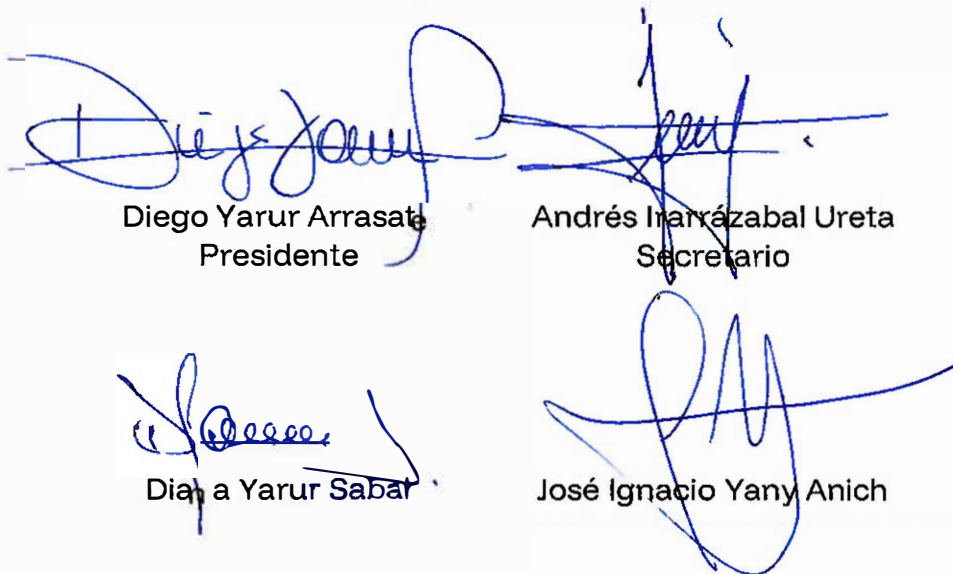 Diego Yarur
Diego Yarur Arrasate
Presidente
Andrés Irarrázabal Ureta
Secretario
Diana Yarur Sabar
José Ignacio Yany Anich